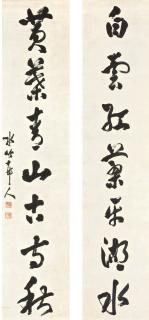 白雲紅蓼平湖水
黃葉青山古寺秋
水竹邨人